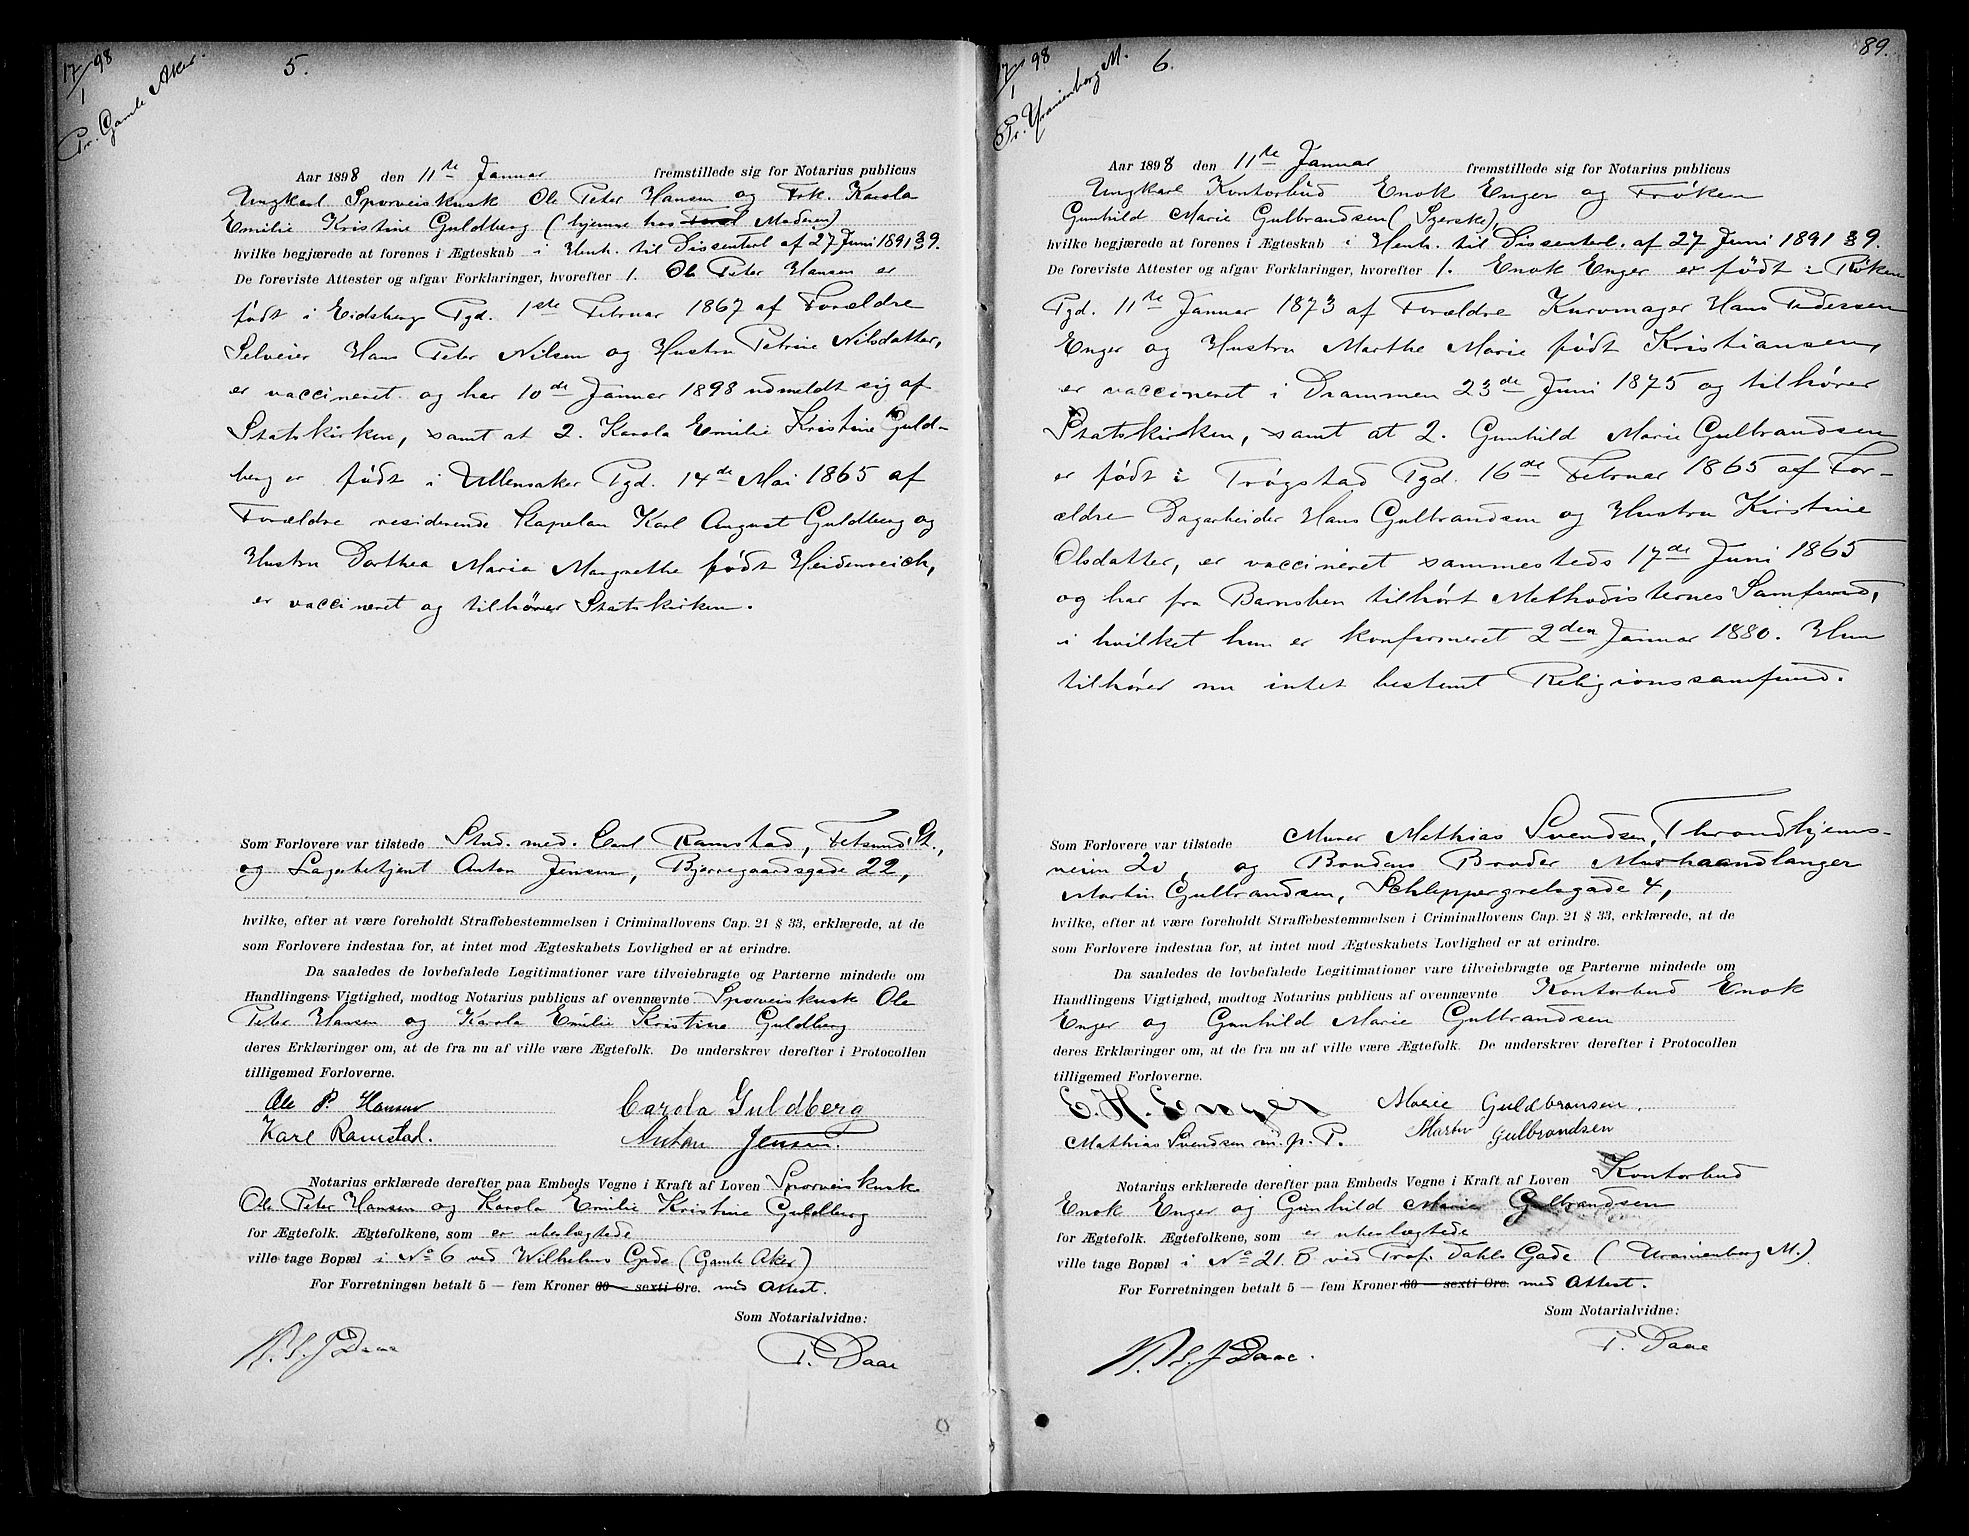 17/1 98
Pr. Gamle Aker.
5.
Aar 1898 den 11te Januar fremstillede sig for Notarius publicus
Ungkarl Sporveiskusk Ole Peter Hansen og Frk. Karola
Emilie Kristine Guldberg (hjemme hos Moderen)
hvilke begjærede at forenes i Ægteskab i Henh. til Dissenterl. af 27 Juni 1891 § 9.
De foreviste Attester og afgav Forklaringer, hvorefter 1. Ole Peter Hansen er
født i Eidsberg Pgd. 1ste Februar 1867 af Forældre
Selveier Hans Peter Nilsen og Hustru Petrine Nilsdatter,
er vaccineret og har 10de Januar 1898 udmeldt sig af
Statskirken, samt at 2. Karola Emilie Kristine Guld-
berg er født i Ullensaker Pgd. 14de Mai 1865 af
Forældre residerende Kapelan Karl August Guldberg og
Hustru Dorthea Maria Margrethe født Heidenreich,
er vaccineret og tilhører Statskirken.
Som Forlovere var tilstede Stud. med. Carl Ramstad, Fetsund St.,
og Lagerbetjent Anton Jensen, Bjerregaardsgade 22,
hvilke, efter at være foreholdt Straffebestemmelsen i Criminallovens Cap. 21 § 33, erklærede, at de
som Forlovere indestaa for, at intet mod Ægteskabets Lovlighed er at erindre.
Da saaledes de lovbefalede Legitimationer vare tilveiebragte og Parterne mindede om
Handlingens Vigtighed, modtog Notarius publicus af ovennævnte Sporveiskusk Ole
Peter Hansen og Karola Emilie Kristine Guldberg
deres Erklæringer om, at de fra nu af ville være Ægtefolk. De underskrev derefter i Protocollen
tilligemed Forloverne.
Ole P. Hansen Carola Guldberg
Karl Ramstad. Anton Jensen.
Notarius erklærede derefter paa Embeds Vegne i Kraft af Loven Sporveiskusk
Ole Peter Hansen og Karola Emilie Kristine Guldberg
for Ægtefolk. Ægtefolkene, som er ubeslægtede
ville tage Bopæl i No 6 ved Wilhelms Gade (Gamle Aker)
For Forretningen betalt 5 — fem Kroner 60 — sexti Øre. med Attest.
Som Notarialvidne:
N. S. J Daae P. Daae
17/1 98
Pr. Uranienborg M.
6.
89.
Aar 1898 den 11te Januar fremstillede sig for Notarius publicus
Ungkarl Kontorbud Enok Enger og Frøken
Gunhild Marie Gulbrandsen (Syerske),
hvilke begjærede at forenes i Ægteskab i Henh. til Dissenterl. af 27 Juni 1891 § 9.
De foreviste Attester og afgav Forklaringer, hvorefter 1. Enok Enger er født i Røken
Pgd. 11te Januar 1873 af Forældre Kurvmager Hans Pedersen
Enger og Hustru Marthe Marie født Kristiansen,
er vaccineret i Drammen 23de Juni 1875 og tilhører
Statskirken, samt at 2. Gunhild Marie Gulbrandsen
er født i Trøgstad Pgd. 16de Februar 1865 af For-
ældre Dagarbeider Hans Gulbrandsen og Hustru Kirstine
Olsdatter, er vaccineret sammesteds 17de Juni 1865
og har fra Barnsben tilhørt Methodisternes Samfund,
i hvilket hun er konfirmeret 2den Januar 1880. Hun
tilhører nu intet bestemt Religionssamfund.
Som Forlovere var tilstede Murer Mathias Svendsen, Throndhjems-
veien 20, og Brudens Broder Murhaandlanger
Martin Gulbrandsen, Schleppegrelsgade 4,
hvilke, efter at være foreholdt Straffebestemmelsen i Criminallovens Cap. 21 § 33, erklærede, at de
som Forlovere indestaa for, at intet mod Ægteskabets Lovlighed er at erindre.
Da saaledes de lovbefalede Legitimationer vare tilveiebragte og Parterne mindede om
Handlingens Vigtighed, modtog Notarius publicus af ovennævnte Kontorbud Enok
Enger og Gunhild Marie Gulbrandsen
deres Erklæringer om, at de fra nu af ville være Ægtefolk. De underskrev derefter i Protocollen
tilligemed Forloverne.
E. H. Enger Marie Guldbransen.
Mathias Svendsen m. p. P. Martin Gulbrandsen
Notarius erklærede derefter paa Embeds Vegne i Kraft af Loven Kontorbud
Enok Enger og Gunhild Marie Gulbrandsen
for Ægtefolk. Ægtefolkene, som er ubeslægtede
ville tage Bopæl i No 21. B ved Prof. Dahls Gade (Uranienborg M.)
For Forretningen betalt 5 — fem Kroner 60 — sexti Øre. med Attest.
Som Notarialvidne:
N. S. J Daae. P. Daae